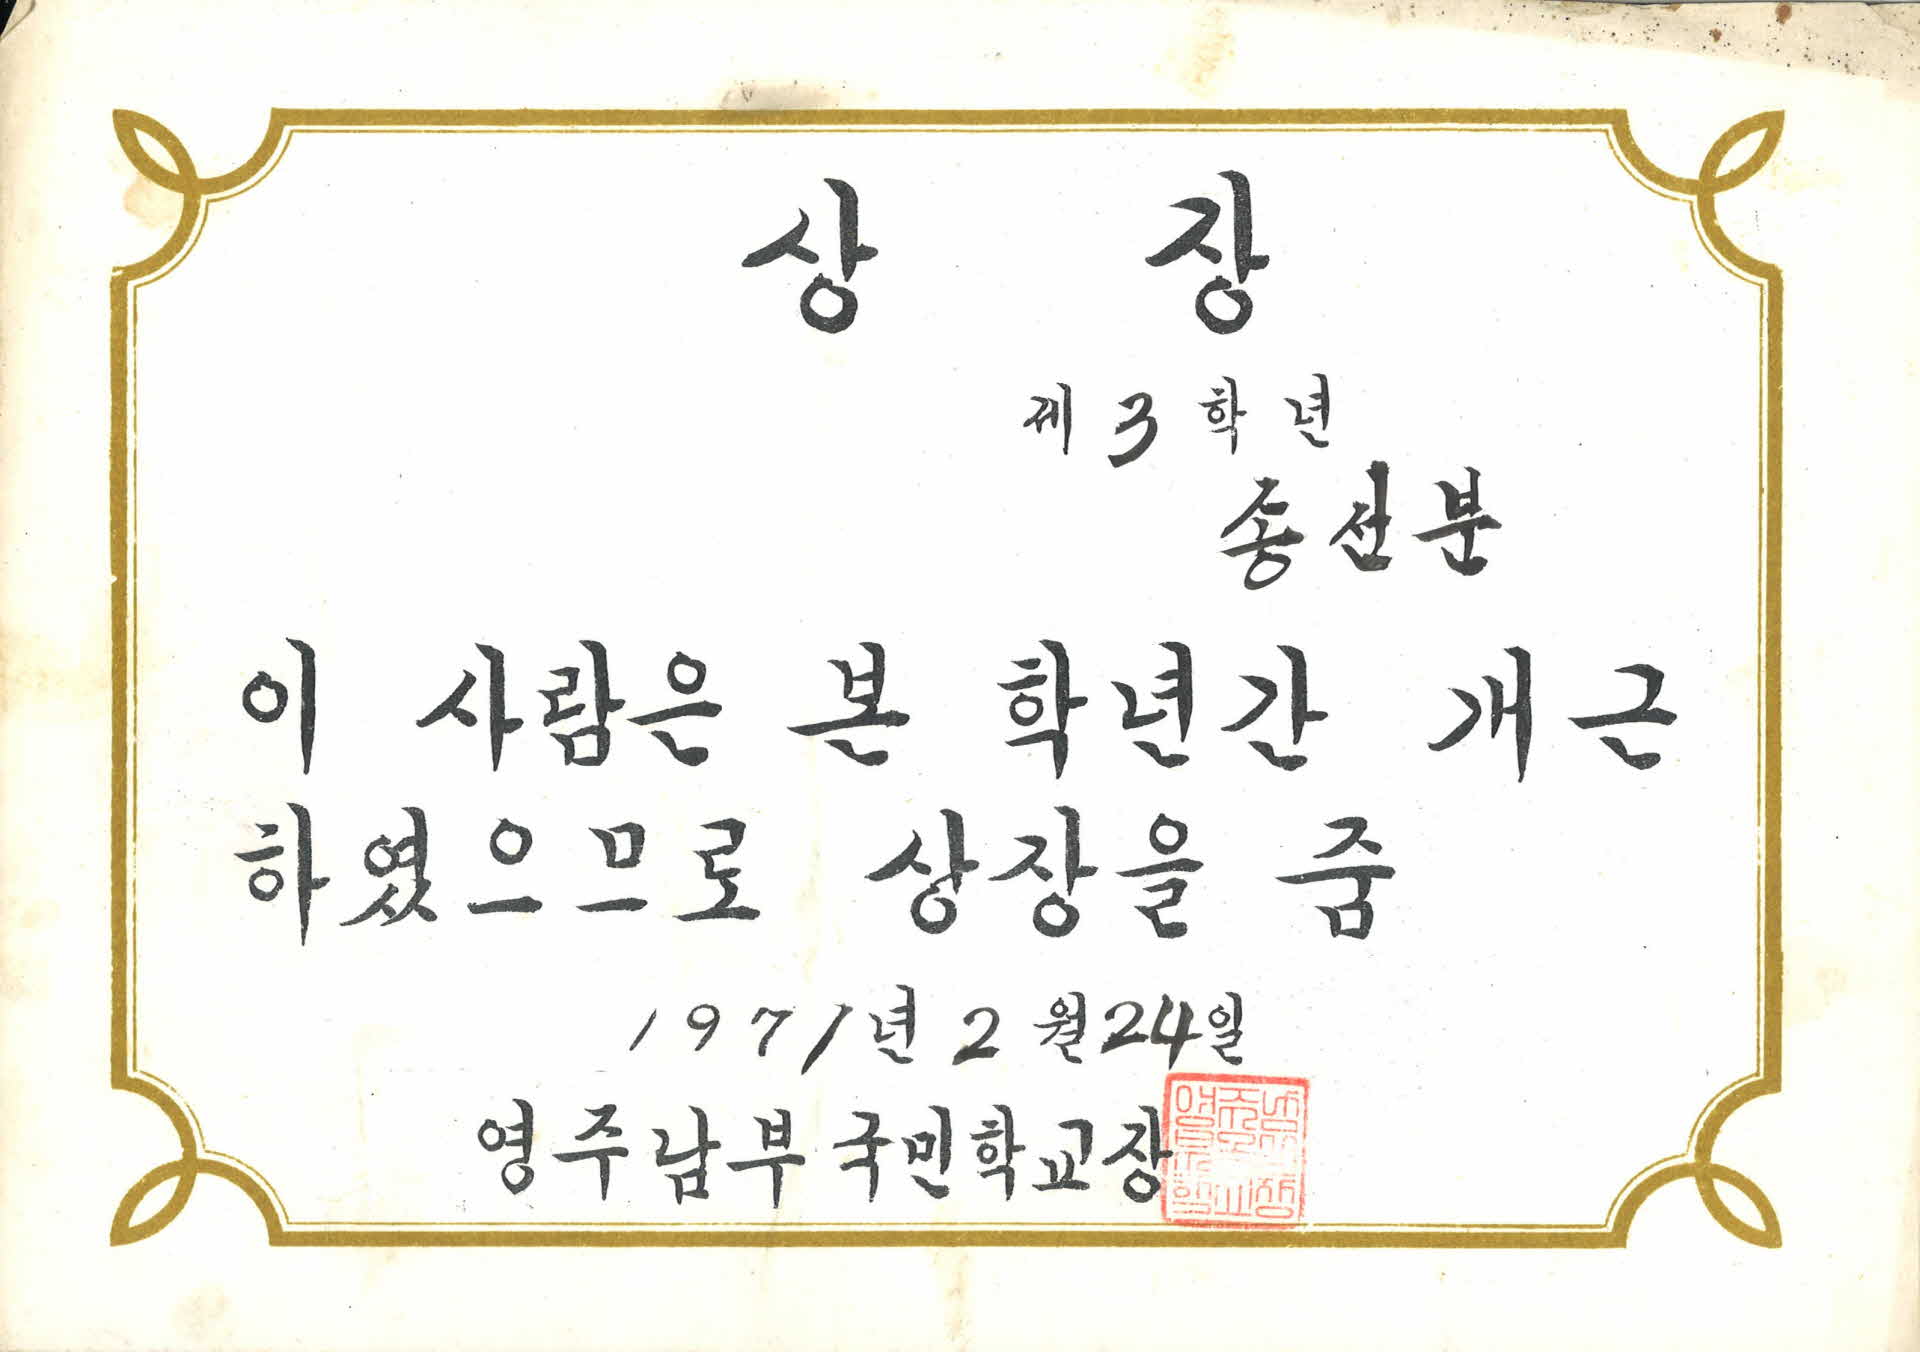 상 장
제 3 학 년
송선분
이 사람은 본 학년간 개근
하였으므로 상장을 줌
1971년 2월 24일
영주남부국민학교장